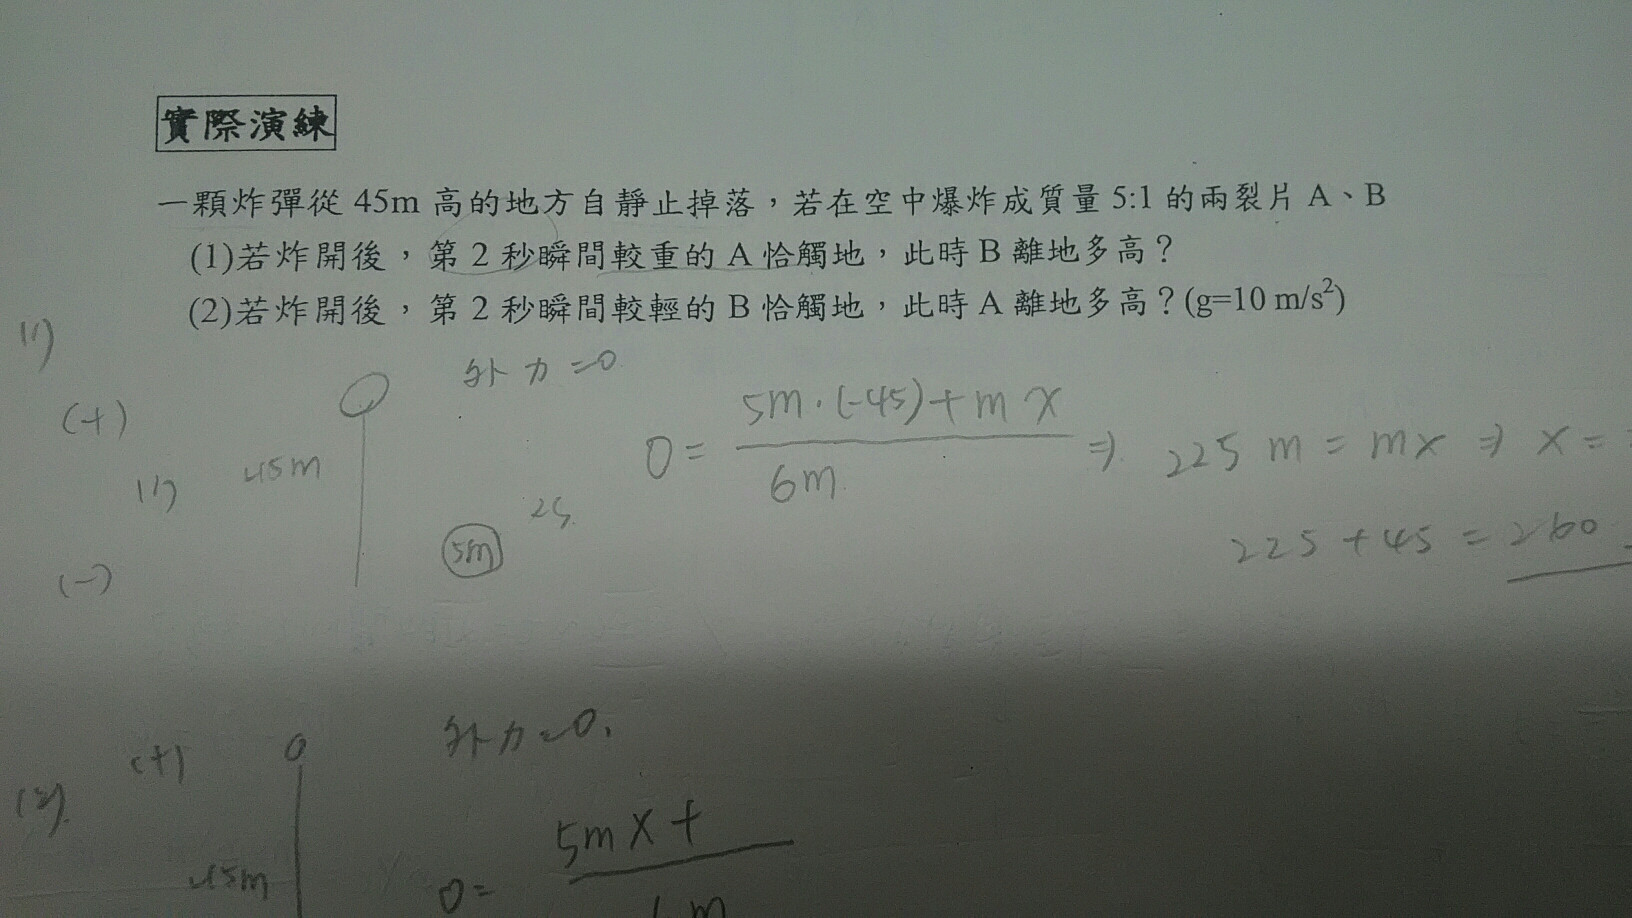 實際演練
一顆炸彈從 45m 高的地方自靜止掉落，若在空中爆炸成質量 5:1 的兩裂片 A、B
(1)若炸開後，第 2 秒瞬間較重的 A 恰觸地，此時 B 離地多高？
(2)若炸開後，第 2 秒瞬間較輕的 B 恰觸地，此時 A 離地多高？(g=10 m/s²)
(1)
外力=0
(+)
45m
0 = 5m·(-45)+mx / 6m ⇒ 225 m = mx ⇒ x =
(1)
2s
5m
225 + 45 = 260
(-)
(+)
0
外力=0.
(2)
45m
0= 5mx + / 6m